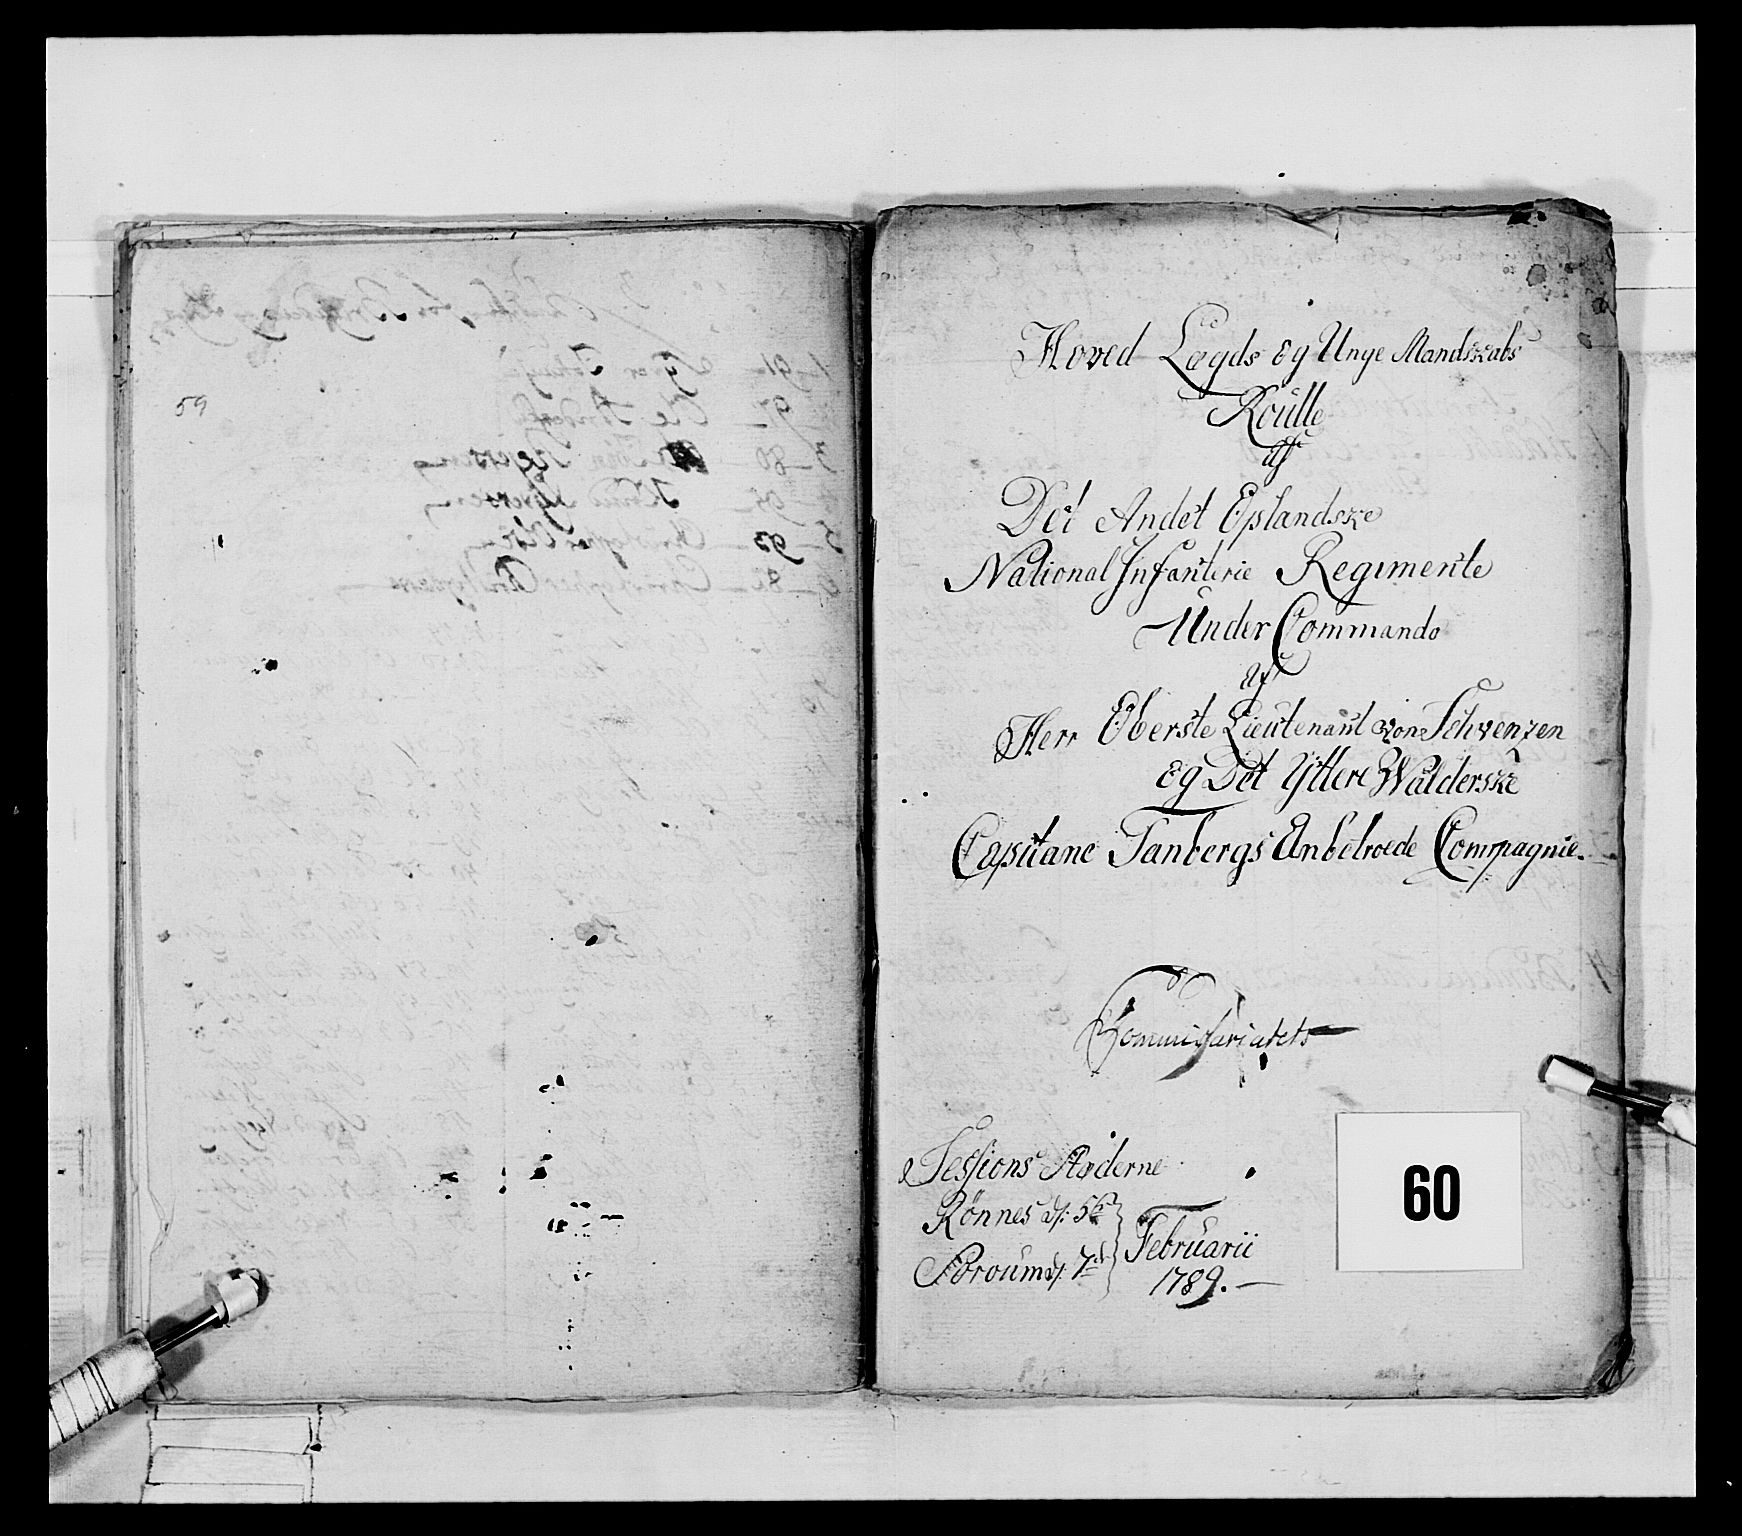 59
Hoved Lægds og Unge Mandskabs
Roulle
af
Det Andet Oplandske
National Infanterie Regimente
Under Commando
af
Herr Oberste Lieutenant von Schvenzen
og Det Yttere Walderske
Capitane Tanbergs Anbetroede Compagnie.
Kommissariatets
Sessions Stæderne
Rönnes d: 5te
Februarii
d: 7de
1789.
60